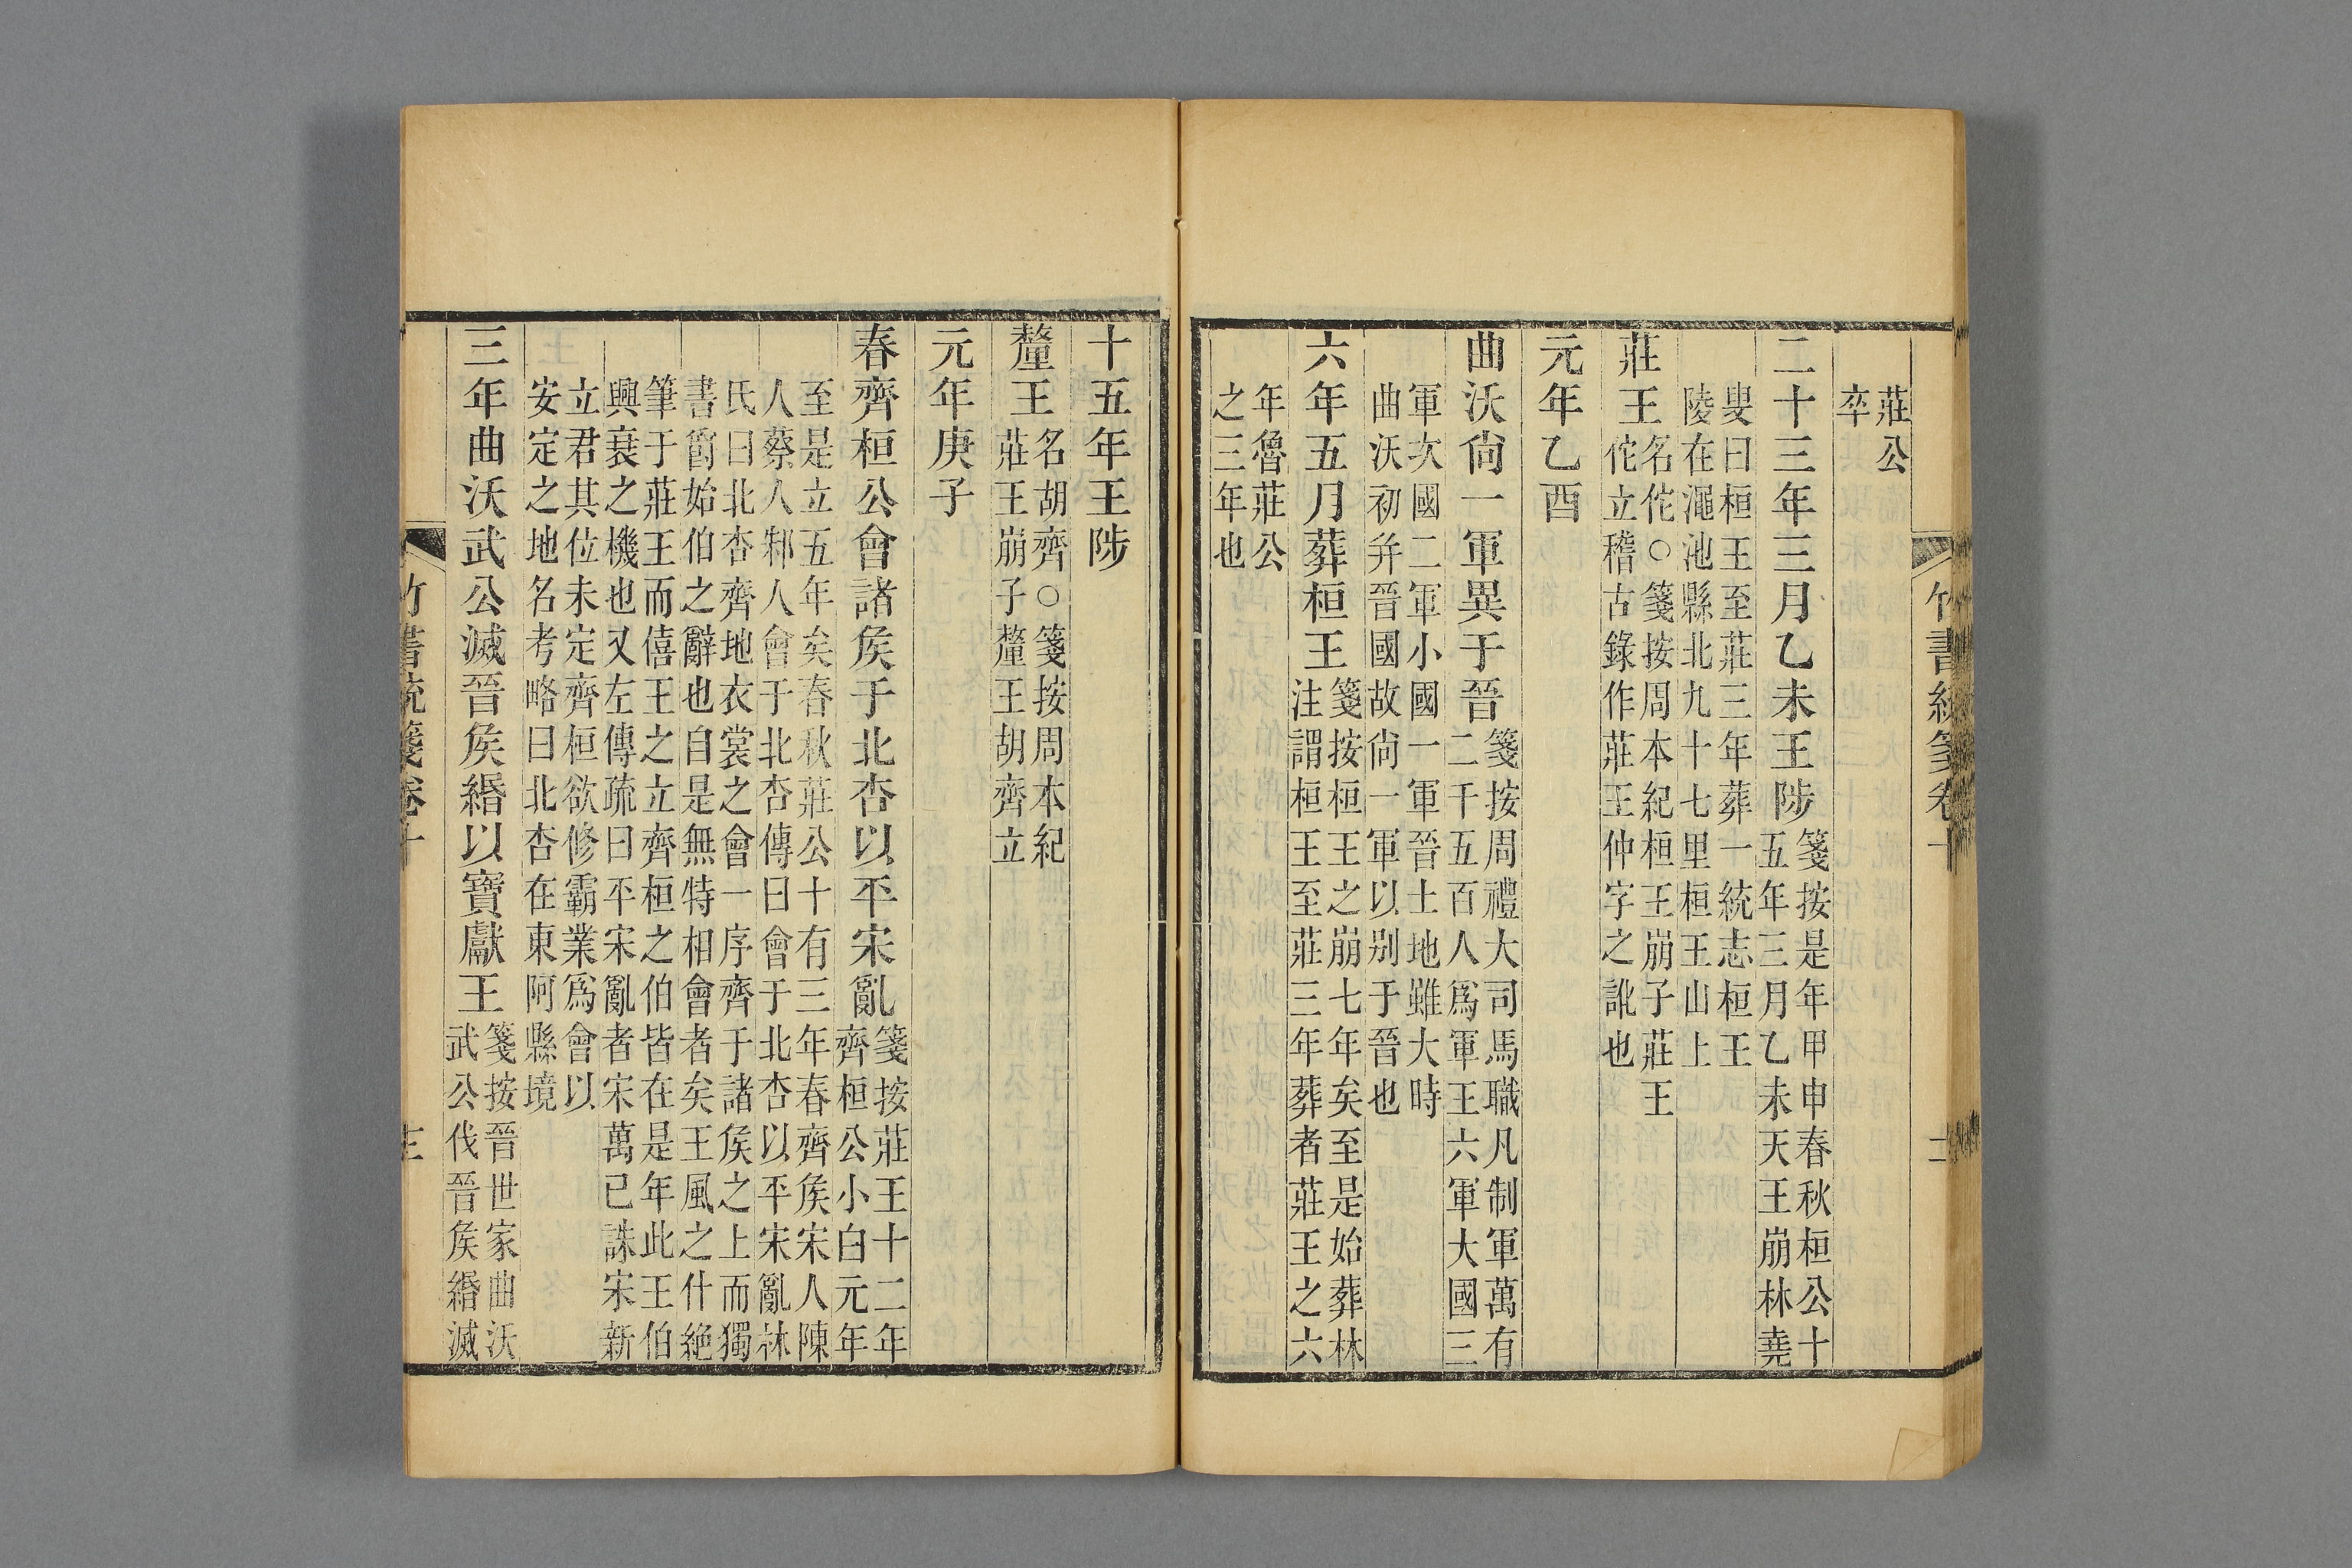 莊公
卒
二十三年三月乙未王陟
箋按是年甲申春秋桓公十
五年三月乙未天王崩林堯
叟曰桓王至莊三年葬一統志桓王
陵在澠池縣北九十七里桓王山上
莊王
名佗○箋按周本紀桓王崩子莊王
佗立稽古錄作莊王仲字之訛也
元年乙酉
曲沃尙一軍異于晉
箋按周禮大司馬職凡制軍萬有
二千五百人爲軍王六軍大國三
軍次國二軍小國一軍晉土地雖大時
曲沃初并晉國故尙一軍以别于晉也
六年五月葬桓王
箋按桓王之崩七年矣至是始葬林
注謂桓王至莊三年葬者莊王之六
年魯莊公
之三年也
竹書統箋卷十
十五年王陟
釐王
名胡齊○箋按周本紀
莊王崩子釐王胡齊立
元年庚子
春齊桓公會諸矦于北杏以平宋亂
箋按莊王十二年
齊桓公小白元年
至是立五年矣春秋莊公十有三年春齊矦宋人陳
人蔡人邾人會于北杏傳曰會于北杏以平宋亂林
氏曰北杏齊地衣裳之會一序齊于諸矦之上而獨
書爵始伯之辭也自是無特相會者矣王風之什絶
筆于莊王而僖王之立齊桓之伯皆在是年此王伯
興衰之機也又左傳疏曰平宋亂者宋萬已誅宋新
立君其位未定齊桓欲修霸業爲會以
安定之地名考略曰北杏在東阿縣境
三年曲沃武公滅晉矦緡以寶獻王
箋按晉世家曲沃
武公伐晉矦緡滅
竹書統箋卷十